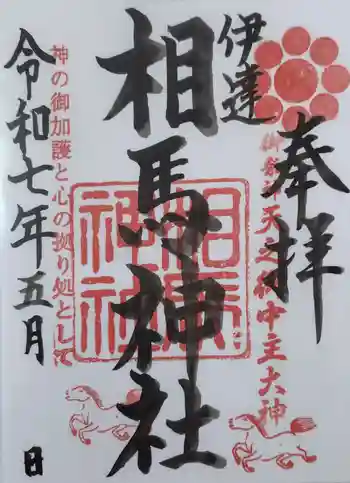 奉拝
御祭神天之御中主大神
伊達
相馬神社
相馬神社
神の御加護と心の拠り処として
令和七年五月
日